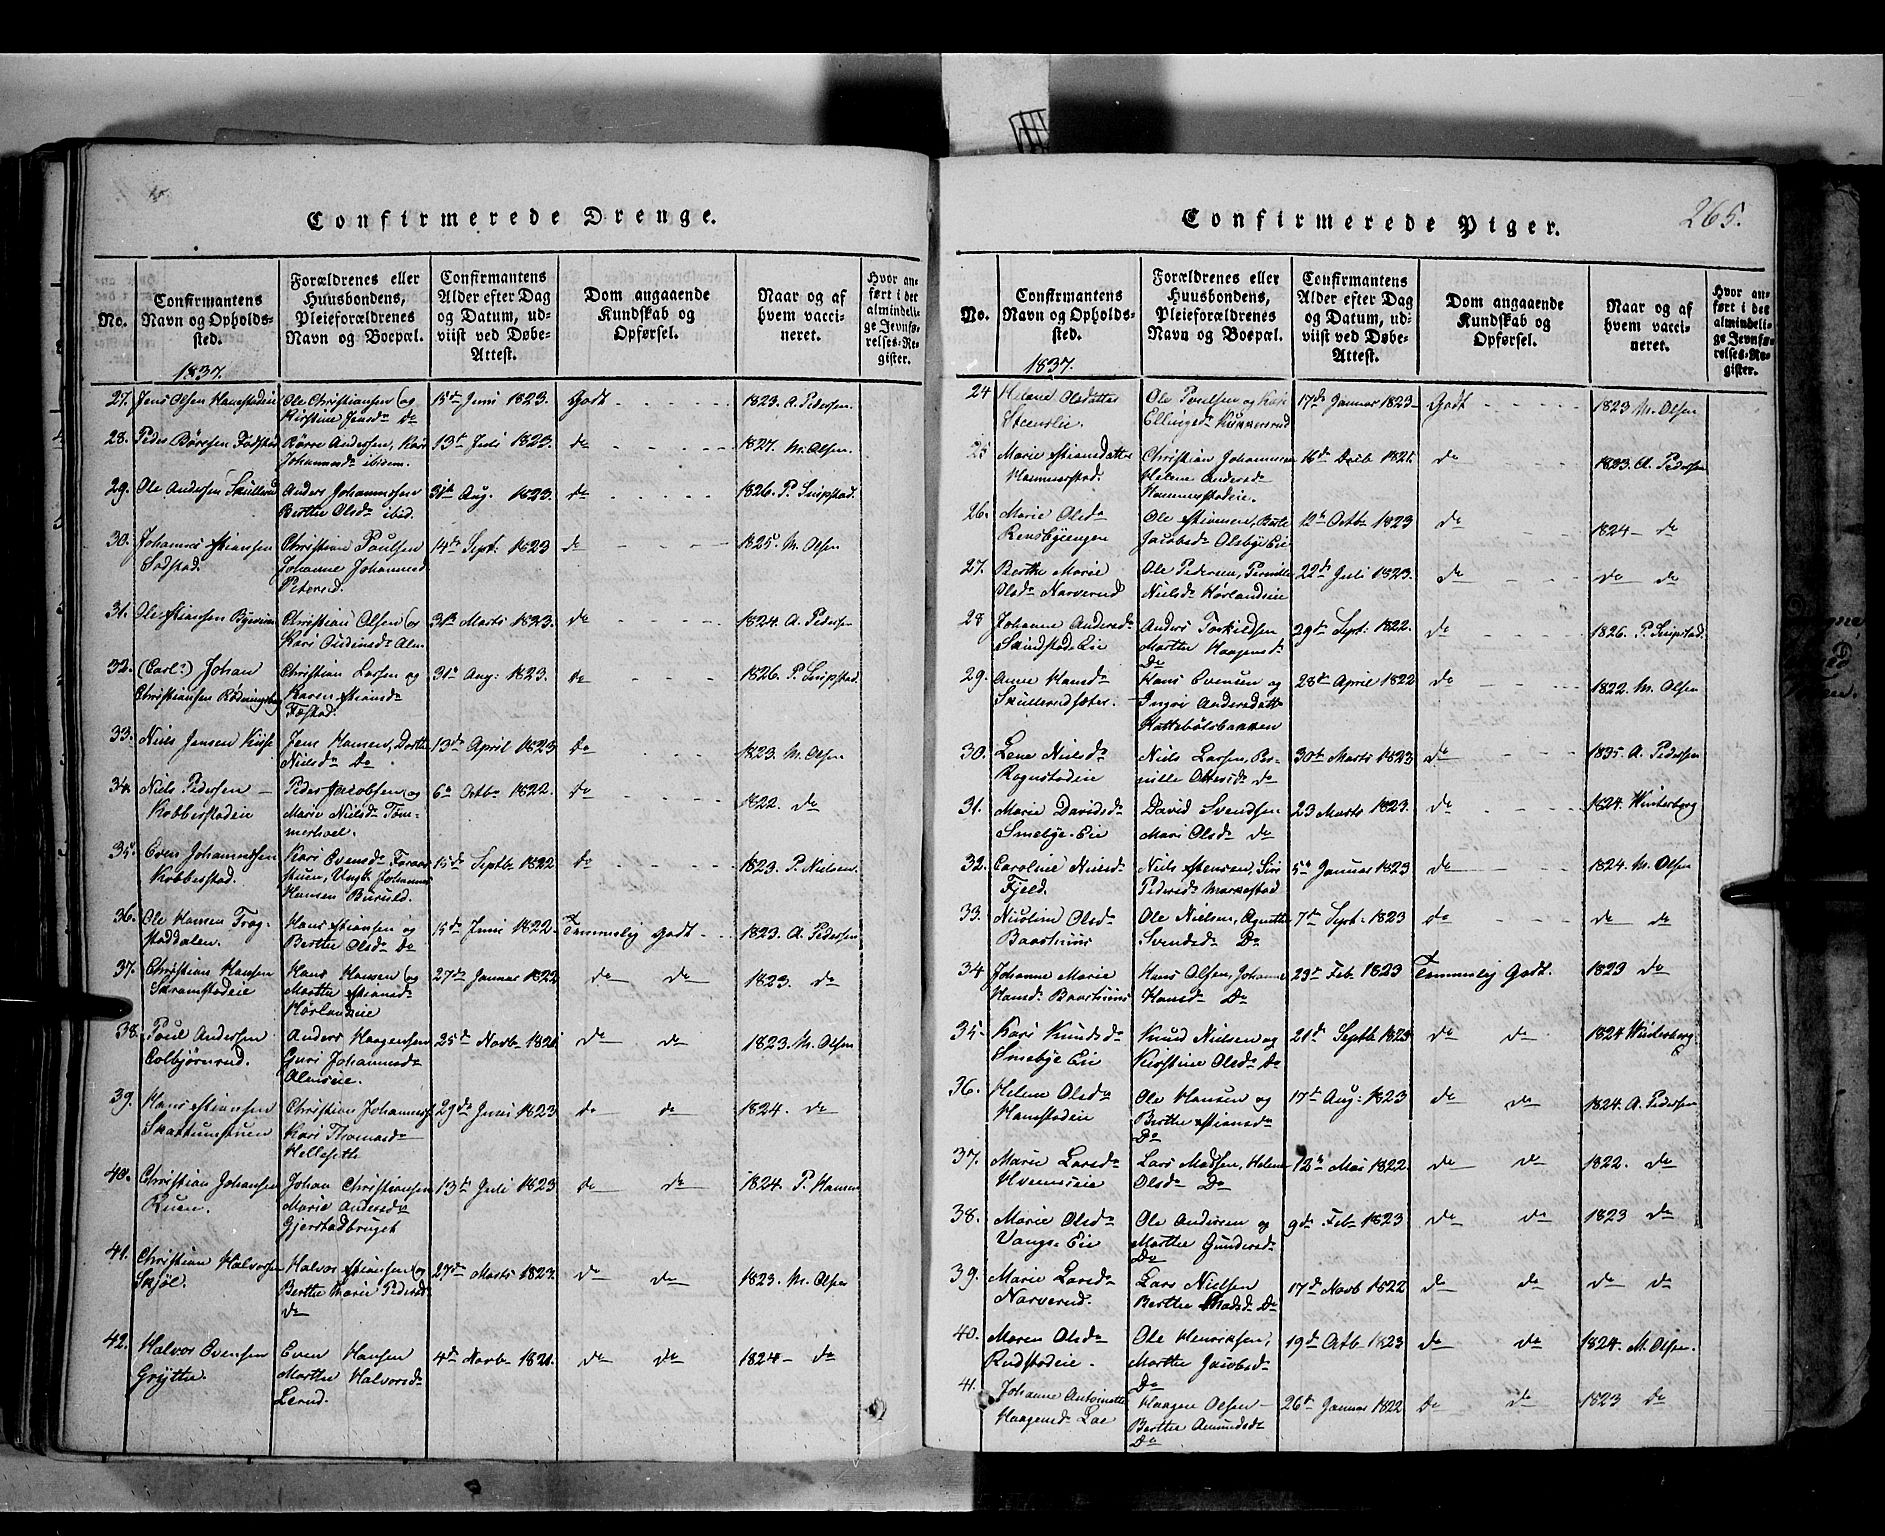 Confirmerede Drenge.
No.
Confirmantens
Navn og Opholds-
sted.
1837.
Forældrenes eller
Huusbondens,
Pleieforældrenes
Navn og Boepæl.
Confirmantens
Alder efter Dag
og Datum, ud-
viist ved Døbe-
Attest.
Dom angaaende
Kundskab og
Opførsel.
Naar og af
hvem vacci-
neret.
Hvor an-
ført i det
almindeli-
ge Jevnfø-
relses-Re-
gister.
27. Jens Olsen Ole Christiansen og 15de Juni 1823. Godt 1823. A. Pedersen
Kirstine Jensd. Do
28. Peder Børresen Børre Andersen, Kari 13de Juli 1823. do 1827. M. Olsen.
Johannesd. ibidem.
29. Ole Andersen Skullerud Anders Johannessen 31te Aug. 1823. do 1826. P. Snipstad.
Berthe Olsd. ibid.
30. Johannes Christian Poulsen 14de Sept. 1823 do 1825 M. Olsen
Sodstad. Johanne Johannesd.
31. Ole Christian Olsen og 31te Marts 1823. do 1824. A. Pedersen
Kari
32. (Carl?) Johan Christian Larsen og 31te Aug. 1823. do 1826. P. Snipstad.
Christiansen Karen
33. Niels Jensen Jens Hansen, Dorthe 13de April 1823 Do 1823. M. Olsen
Nielsd. Do
34. Niels Pedersen Peder Jacobsen og 6te Octb. 1822. do 1822. do
Kobberstadeie Marie Nielsd. Tøm-
merhoel.
35. Even Johannessen Kari Evensd. 15de Septb. 1822 do 1823. P. Nielsen
Kobberstad. stuen, Ungk. Johannes
Hansen
36. Ole Hansen Frog- Hans og 15de Juni 1822. Temmelig godt 1823. A. Pedersen
staddalen. Berthe Olsd. Do
37. Christian Hansen Hans Hansen og 27de Januar 1822 do do 1823. do
Skramstadeie Marthe
Hørlandseie
38. Poul Andersen Anders Haagensen 25de Novb. do do 1823. M. Olsen
Colbjørnrud. Guri Johannesd.
Almseie.
39. Hans Christian Johannes 29de Juni 1823 do do 1824. do
Skattumstuen Kari Thomasd.
40. Christian Johansen Johan Christiansen 13de Juli 1823 do do 1824. P. Hansen
Ruen. Marie Andersd.
Gjerstadbruget
41. Christian Halvorsen Halvor og 27de Marts 1823. do do 1823. M. Olsen
Skjøl. Berthe Marie Pedersd.
do
42. Halvor Evensen Even Hansen 4de Novb. 1821. do do 1824 do
Grytte. Marthe Halvorsd.
Lerud.
Confirmerede Piger.
265.
No.
Confirmantens
Navn og Opholds-
sted.
1837.
Forældrenes eller
Huusbondens,
Pleieforældrenes
Navn og Boepæl.
Confirmantens
Alder efter Dag
og Datum, ud-
viist ved Døbe-
Attest.
Dom angaaende
Kundskab og
Opførsel.
Naar og af
hvem vacci-
neret.
Hvor an-
ført i det
almindeli-
ge Jevnfø-
relses-Re-
gister.
24 Helene Olsdatter Ole Poulsen og 17de Januar 1823 Godt 1823 M. Olsen
Steenslie. Ellingsd.
25 Marie Christian Johannesen 16de 1821. do 1823. A. Pedersen
Hammerstad. Helene Andersd.
Hammerstadeie.
26. Marie Olsd. Ole 12te Octb. 1823 do 1824 do
Rensbyengen Jacobsd. Olsbye Eie
27. Berthe Marie Ole Pedersen, Pernille 22de Juli 1823. do do do
Olsd. Narverud Nielsd. Hørlandseie
28 Johanne Andersd. Anders Torkildsen 29de Sept. 1822. do 1826. P. Snipstad.
Sundstad Eie Marthe Haagensd.
Do
29. Anne Hansd. Hans Evensen og 28de April 1822 do 1822. M. Olsen
Skullerudsæter. Ingri Andersdatter
30. Lene Nielsd. Niels Larsen, Per- 30te Marts 1823 do 1835. A. Pedersen
Rognstadeie nille do
31. Marie Davidsd. David Svendsen 23 Marts 1823. do 1824. Winterborg
Smebye Eie Mari Olsd. do
32. Caroline Nielsd. Niels Siri 5te Januar 1823 do 1824. M. Olsen
Fjeld. Pedersd.
33. Nicoline Olsd. Ole Nielsen, Agnethe 7de Sept. 1823 do do do
Svendsd. Do
34 Johanne Marie Hans Olsen, Johanne 23de Feb. 1823 Temmelig Godt. 1823 do
Hansd. Hansd. Do
35. Kari Knudsd. Knud Nielsen og 21de Septb. 1823 do do 1824 Winterborg
Smebye Eie Kirstine Olsd. Do
36. Helene Olsd. Ole Hansen og 17de Aug. 1823 do do 1824. A. Pedersen
Berthe
Do
37. Marie Larsd. Lars Madsen, Helene 12te Mai 1822 do do 1822. do
Olsd. Do
38. Marie Olsd. Ole Andersen og 9de Feb. 1823 do do 1823 do
Vangs Eie Marthe Gundersd.
Do
39. Marie Larsd. Lars Nielsen 17de Novb 1822 do do do do
Narverud. Berthe Madsd. Do
40. Maren Olsd. Ole Henriksen, 19de Octb. 1823 do do 1824. M. Olsen.
Rudstadeie. Marthe Jacobsd.
Do
41. Johanne Antoinette Haagen Olsen 26de Januar 1822 Do do 1823 do
Haagensd. Lae Berthe Amundsd.
Do